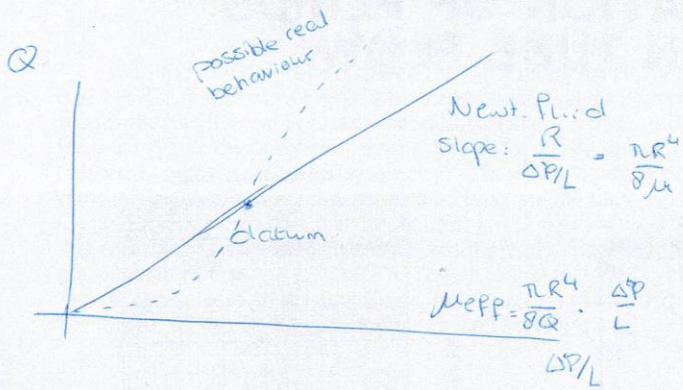 Q
possible real
behaviour
Newt. Fluid
slope: R/(ΔP/L) = πR⁴/8μ
datum
μeff = πR⁴/8Q · ΔP/L
ΔP/L